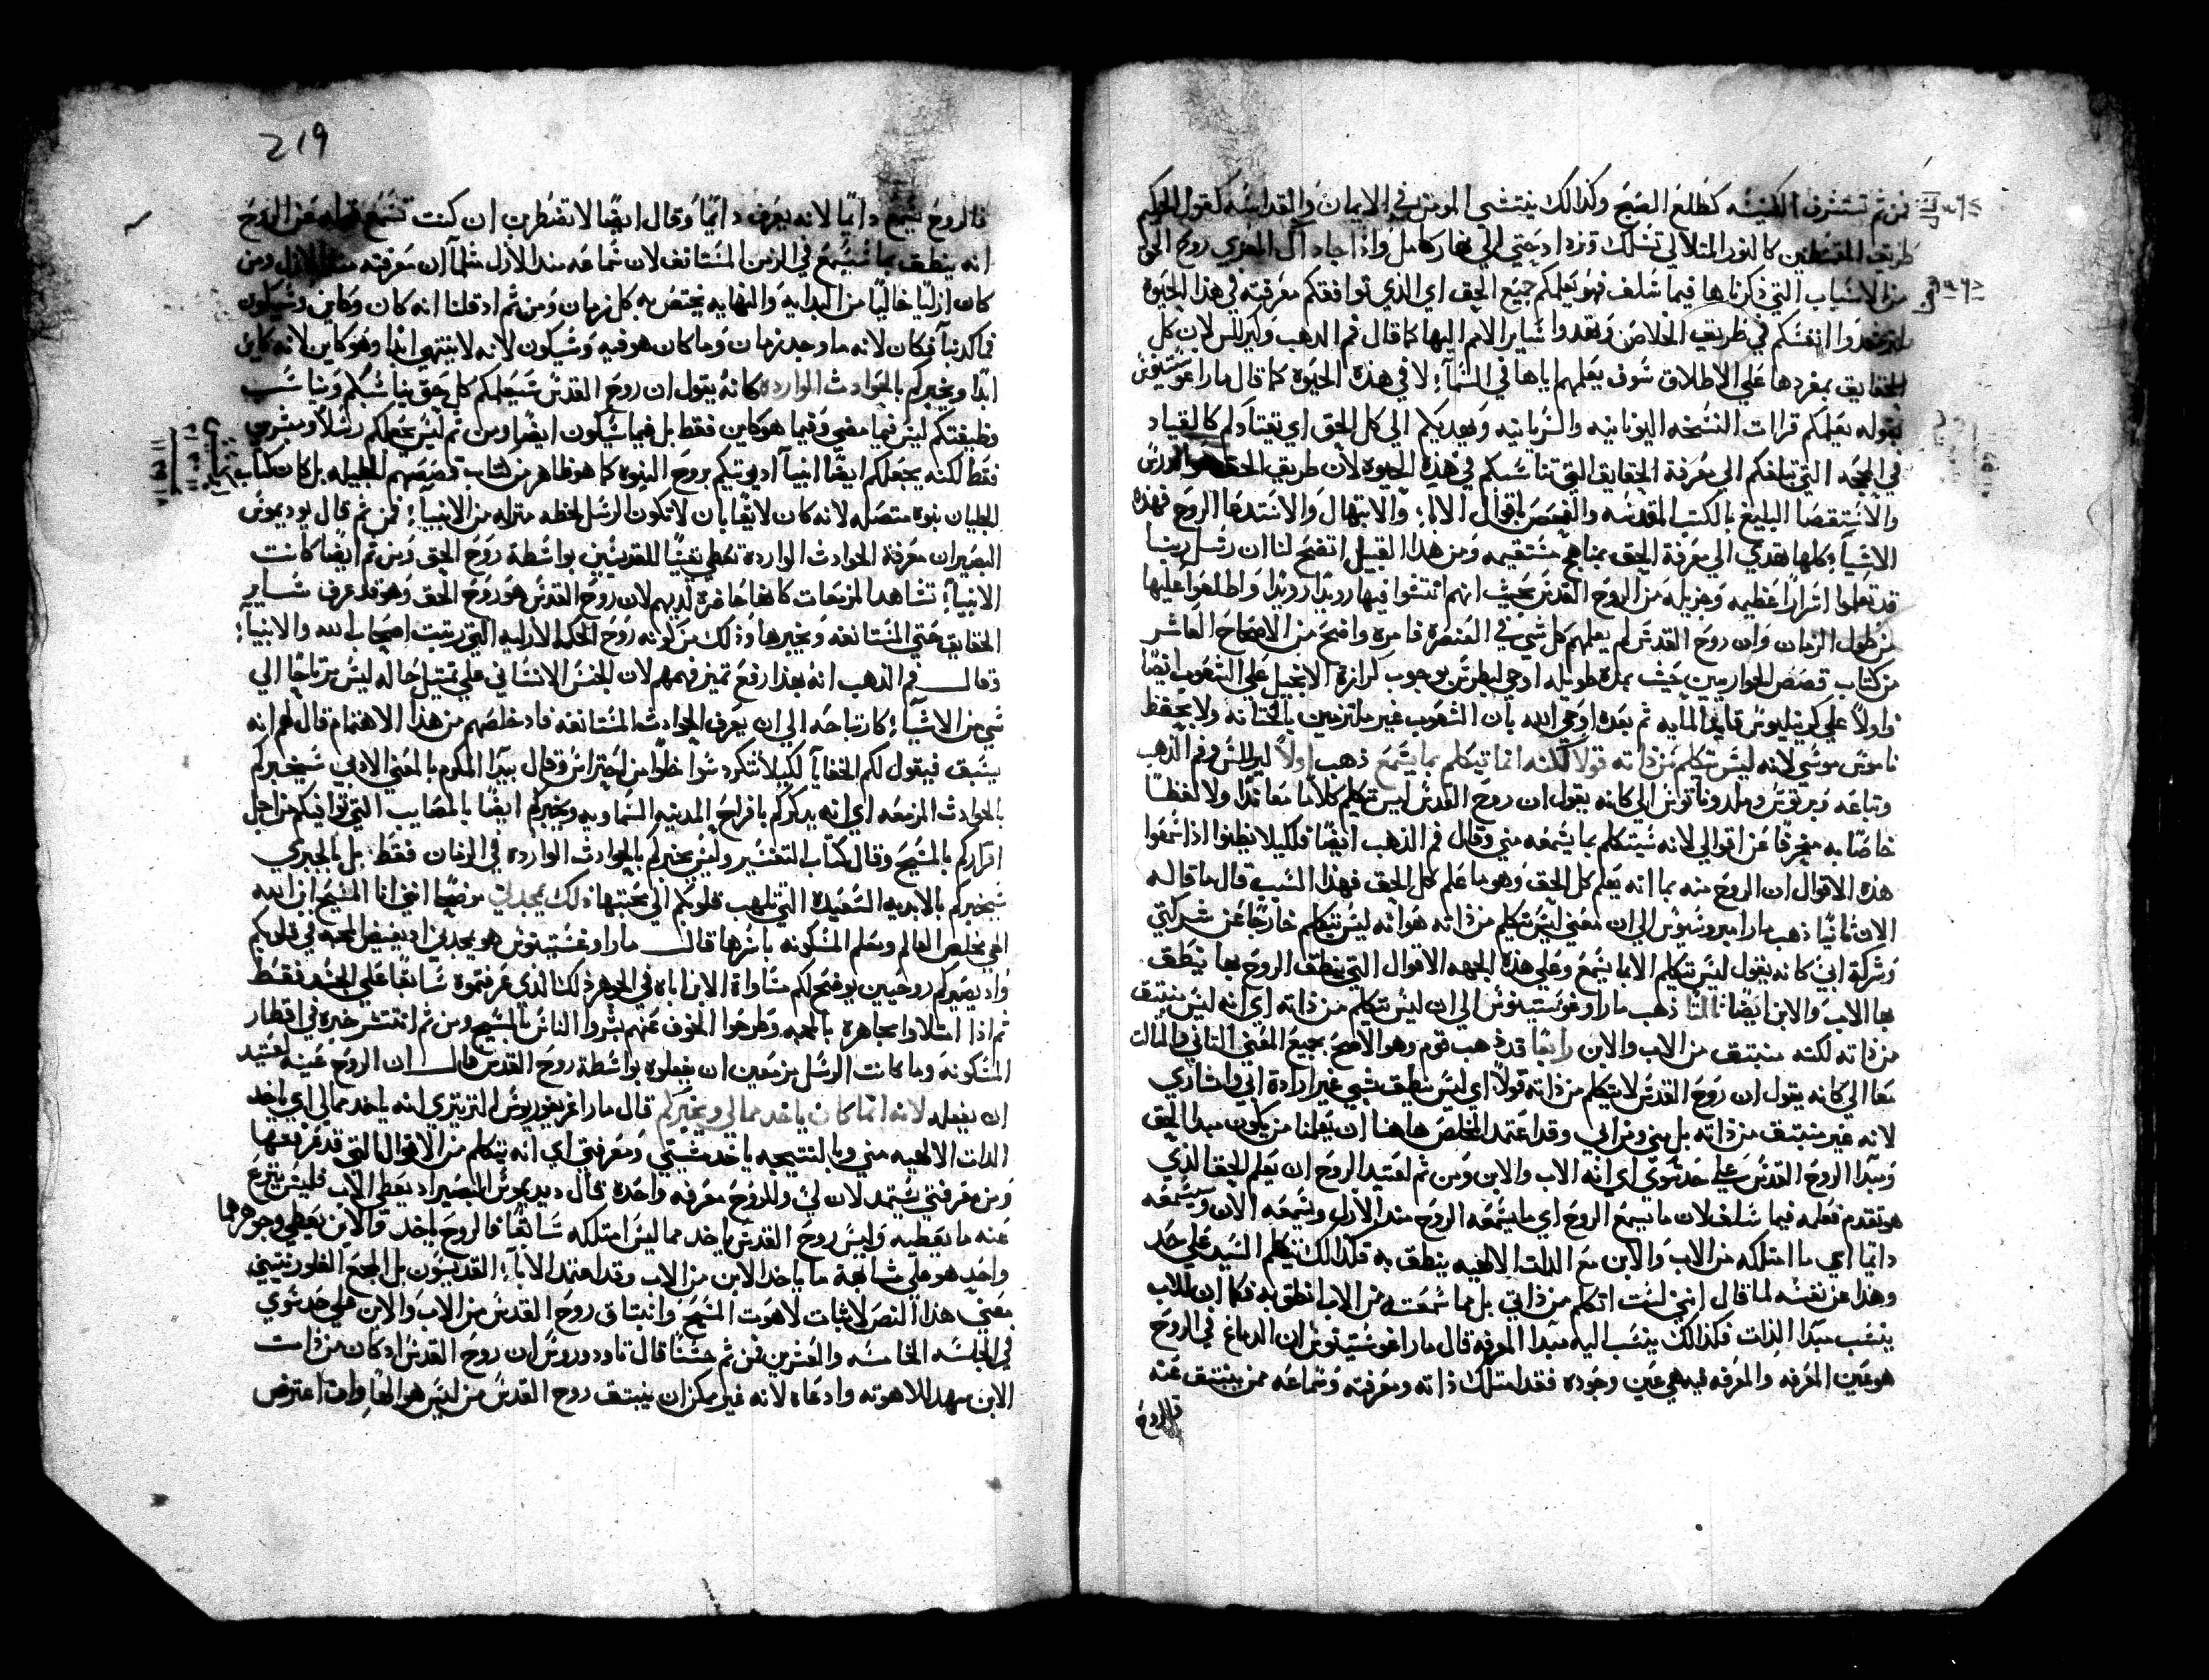 فمن ثم تستشرف الكنيسه كطلع الصبح وكذالك ينتشى المومن في الايمان والقداسه كقول الحكيم
طريق المقسطين كالنور المتلالي تسلك وتزداد حتي الي نهار كامل واذا جاء ذاك المعزي روح الحق
من الاسباب التي ذكرناها فيما سلف فهو يعلمكم جميع الحق اي الذي توافقكم معرفته في هذا الحيوه
انفسكم في طريق الخلاص وتهدوا ساير الامم اليها كما قال فم الذهب وكيرللس لان كل
الحقايق بمفردها علي الاطلاق سوف يعلمهم اياها في السمآء لا في هذه الحيوه كما قال ماراغوستينوس
بقوله يعلمكم قرات النسخه اليونانيه والسريانيه ويهديكم الي كل الحق اي يقتادكم كالقياد
في المحجه التي تبلغكم الي معرفة الحقايق التي تناسبكم في هذه الحيوه لان طريق الحق هو الدرس
والاستقصا البليغ بالكتب المقدسه والفحص باقوال الابآء والابتهال والاستدعا الروح فهذه
الاشيآء كلها تهدي الي معرفة الحق بمناهج مستقيمه ومن هذا القبيل اتضح لنا ان رسل ربنا
قد تعلموا اسرارًا عظيمه وجزيله من الروح القدس بحيث انهم انتشوا فيها رويدًا رويدًا واطلعوا عليها
من طول الزمان وان روح القدس لم يعلمهم كل شي في العنصره فامره واضح من الاصحاح العاشر
من كتاب قصص الحواريين حيث بمده طويله اوحي لبطرس بوجوب كرازة الانجيل علي الشعوب ايضًا
واولاً علي كرنيليوس قايد المايه ثم بعده اوحي الله بان الشعوب غير ملتزمين بالختانه ولا بحفظ
ناموس موسي لانه ليس يتكلم من ذاته قولاً لكنه انما يتكلم بما يسمع ذهب اولاً كيرللس وفم الذهب
وتباعه وبرنوس وملدوناتوس الي كانه يقول ان روح القدس ليس يتكلم كلامًا معاندًا ولا لفظًا
خاصًا به مفرقًا عن اقوالي لانه سيتكلم بما يسمعه مني وقال فم الذهب ايضًا فلكيلا يظنوا اذا سمعوا
هذه الاقوال ان الروح منه بما انه يعلم كل الحق وهو ما علم كل الحق فهذا السبب قال ما قاله
الان ثانيًا ذهب مار امبروسيوس الي ان معني ليس يتكلم من ذاته هو انه ليس يتكلم خارجًا عن شركتي
وشركة ابي كانه يقول ليس يتكلم الا بما يسمع وعلي هذه الجهه الاقوال التي ينطق الروح بها ينطق
بها الاب والابن ايضًا ثالثًا ذهب ماراوغوستينوس الي ان ليس يتكلم من ذاته اي انه ليس ينبثق
من ذاته لكنه منبثق من الاب والابن رابعًا قد ذهب قوم وهو الاصح بجميع المعني الثاني والثالث
معًا الي كانه يقول ان روح القدس لا يتكلم من ذاته قولاً اي ليس ينطق بشي غير ارادة ابي وانشازي
لانه غير منبثق من ذاته بل مني ومن ابي وقد اعتمد المخلص هاهنا ان يعلمنا من يكون مبدا الحق
ومبدا الروح القدس علي حد سوي اي انه الاب والابن ومن ثم لعتيد الروح ان يعلم الحق الذي
هو تقدم فعلمه فيما سلف لان ما يسمع الروح اي ما يسمعه الروح منذ الازل ويسمعه الان وسيسمعه
دايمًا اعي ما امتلكه من الاب والابن مع الذات الالهيه ينطق به فكذالك يتكلم السيد علي حد
وهذا عن نفسه لما قال انني لست اتكلم من ذاتي بل مما سمعته من الاب انطق به فكما ان للاب
ينسب مبدا الذات فكذالك ينسب اليه مبدا المعرفه قال ماراغوستينوس ان الدماغ في الروح
هو عين المعرفه والمعرفه فيه هي عين وجوده فقد امتلك ذاته ومعرفته وسماعه ممن ينبثق عنه
فالروح
219
فالروح يسمع دايمًا لانه يعرف دايمًا وقال ايضًا لا تفطرين ان كنت تسمع قوله عن الروح
انه ينطق بما سيسمع في الزمن المستانف لان سماعه منذ الازل سُمآ ان معرفته منذ الازل ومن
كان ازليًا خاليًا من البدايه والنهايه يختص به كل زمان ومن ثم اد قلنا انه كان وكاين وسيكون
فما كذبنا فكان لانه ما وجد زمان وما كان هو فيه وسيكون لانه لا ينتهي ابدًا وهو كاين لانه كاين
ابدًا ويخبركم بالحوادث الوارده كانه يقول ان روح القدس سيعلمكم كل حق يناسبكم ويناسب
وظيفتكم ليس فيما مضي وفيما هو كاين فقط بل فيما سيكون ايضًا ومن ثم ليس يجعلكم رسلاً ومبشرين
فقط لكنه يجعلكم ايضًا انبيآ اد يوتيكم بروح النبوه كما هو ظاهر من كتاب قصصهم الجليله بل كان كتاب
الجليان نبوه متصله لانه كان لايقًا بان لا تكون الرسل احظه منزله من الانبيآء فمن ثم قال يوديموس
البصير ان معرفة الحوادث الوارده تعطي نفسيًا للقديسين بواسطة روح الحق ومن ثم ايضًا كانت
الانبيآء تشاهد المزمعات كانها حاضره لديهم لان روح القدس هو روح الحق وهو قد عرف ساير
الحقايق حتي المستانفه ويخبرها وذلك من كونه روح الحكمه الازليه التي ربيت اصحاب الله والانبيآء
وقال فم الذهب انه بهذا رفع تميز فهمهم لان الجنس الانساني علي تمثيل حاله ليس يرتاحا الي
شي من الاشيآء كارتياحه الي ان يعرف الحوادث المستانفه فاد خلصهم من هذا الاهتمام قال لهم انه
يسبق فيقول لكم الخفايا لكيلا تتكردسوا خلوًا من احتراس وقال بيدا المكرم بالمعني الادبي سيخبركم
بالحوادث المزمعه اي انه يدكركم بافراح المدينه السماويه ويخبركم ايضًا بالمصايب التي توافيكم من اجل
اقراركم بالمسيح وقال كتاب التفسير وليس يخبركم بالحوادث الوارده في الزمان فقط بل بالحيري
يخبركم بالابديه السعيده التي تلهب قلوبكم الي محبتها ذلك يمجدني موضحًا انني انا المسيح ابن الله
الحي مخلص العالم ومعلم المسكونه باسرها قال ماراوغستينوس هو يمجدني اد يفيض المحبه في قلوبكم
واد يصيركم روحيين يوضح لكم مساواة الابن اباه في الجوهر ذلك الذي عرفتموه سابقًا علي الجسد فقط
ثم اذا امتلاوا مجاهره بالمحبه وطرحوا الخوف عنهم بشروا الناس بالمسيح ومن ثم انتشر خبره في اقطار
المسكونه وما كانت الرسل مزمعين ان يفعلوه بواسطة روح القدس قال ان الروح عينه لعتيد
ان يفعله لانه انما كان ياخد ممالي ويخبركم قال مارا غريغوريوس النزينزي انه ياخد ممالي اي ياخد
الذات الالهيه مني وبالنتيجه ياخد مشيتي ومعرفتي اي انه يتكلم من الاقوال التي قد عرفها
ومن معرفتي يستمد لان لي وللروح معرفه واحده قال ديديموس البصير اد يعطي الاب فليس ينزع
عنه ما يعطيه وليس روح القدس ياخد مما ليس امتلكه سابقًا فالروح ياخد والابن يعطي وجوهرهما
واحد هو علي مشابهة ما ياخد الابن من الاب وقد اعتمد الابآء القديسون بل المجمع الفلورنتيني
معني هذا النص لاثبات لاهوت المسيح وانبثاق روح القدس من الاب والابن علي حد سوي
في الجلسه الخامسه والعشرين فمن ثم حسنًا قال تاودوروس ان روح القدس اد كان من ذات
الابن مهد للاهوته وادعاه لانه غير ممكن ان ينبثق روح القدس من ليس هو الهًا واذا اعترض